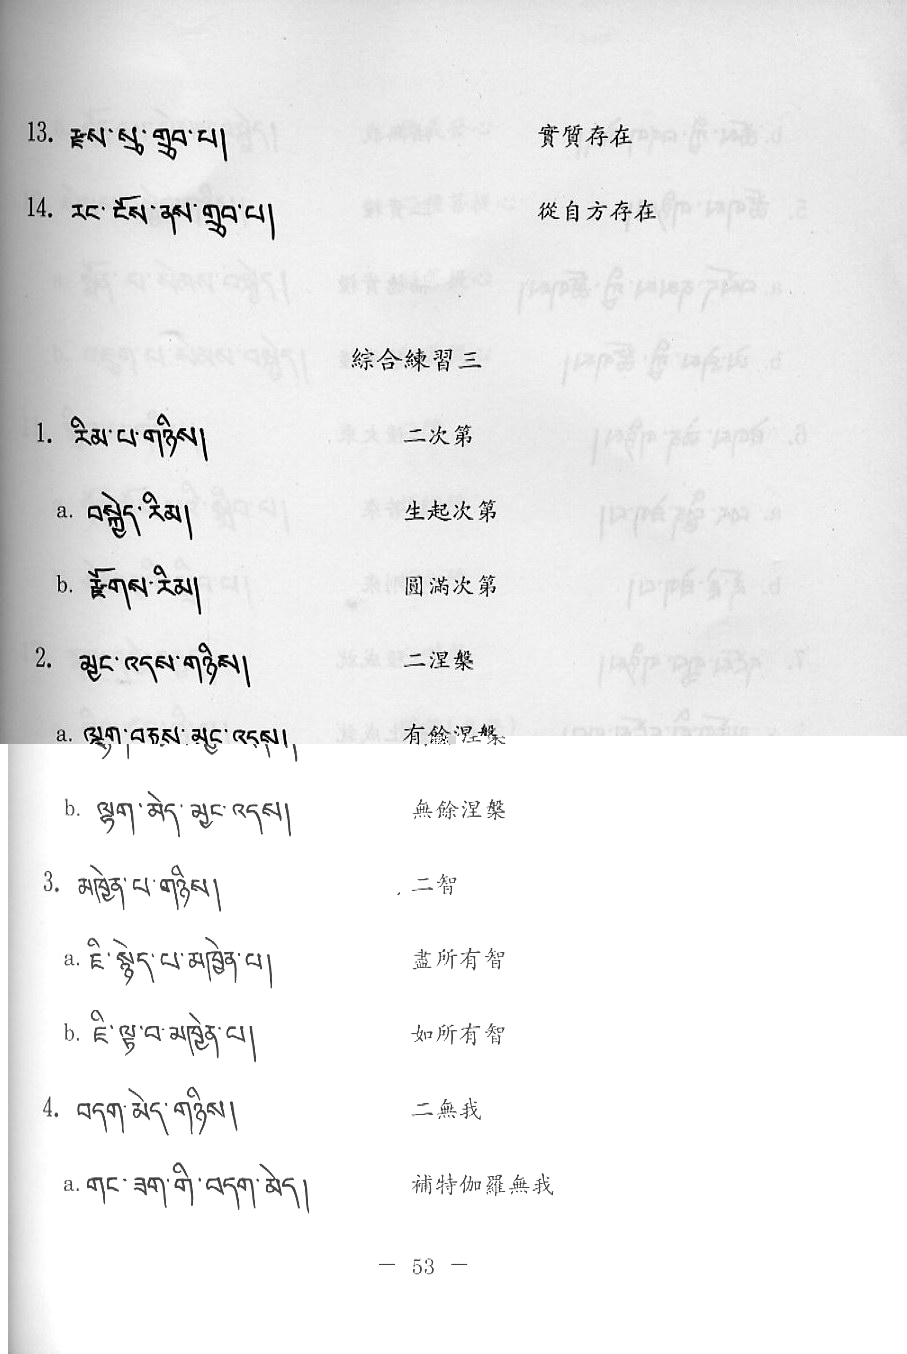 13. རྫས་སུ་གྲུབ་པ། 實質存在
14. རང་ངོས་ནས་གྲུབ་པ། 從自方存在
綜合練習三
1. རིམ་པ་གཉིས། 二次第
a. བསྐྱེད་རིམ། 生起次第
b. རྫོགས་རིམ། 圓滿次第
2. མྱང་འདས་གཉིས། 二涅槃
a. ལྷག་བཅས་མྱང་འདས། 有餘涅槃
b. ལྷག་མེད་མྱང་འདས། 無餘涅槃
3. མཁྱེན་པ་གཉིས། 二智
a. ཇི་སྙེད་པ་མཁྱེན་པ། 盡所有智
b. ཇི་ལྟ་བ་མཁྱེན་པ། 如所有智
4. བདག་མེད་གཉིས། 二無我
a. གང་ཟག་གི་བདག་མེད། 補特伽羅無我
— 53 —